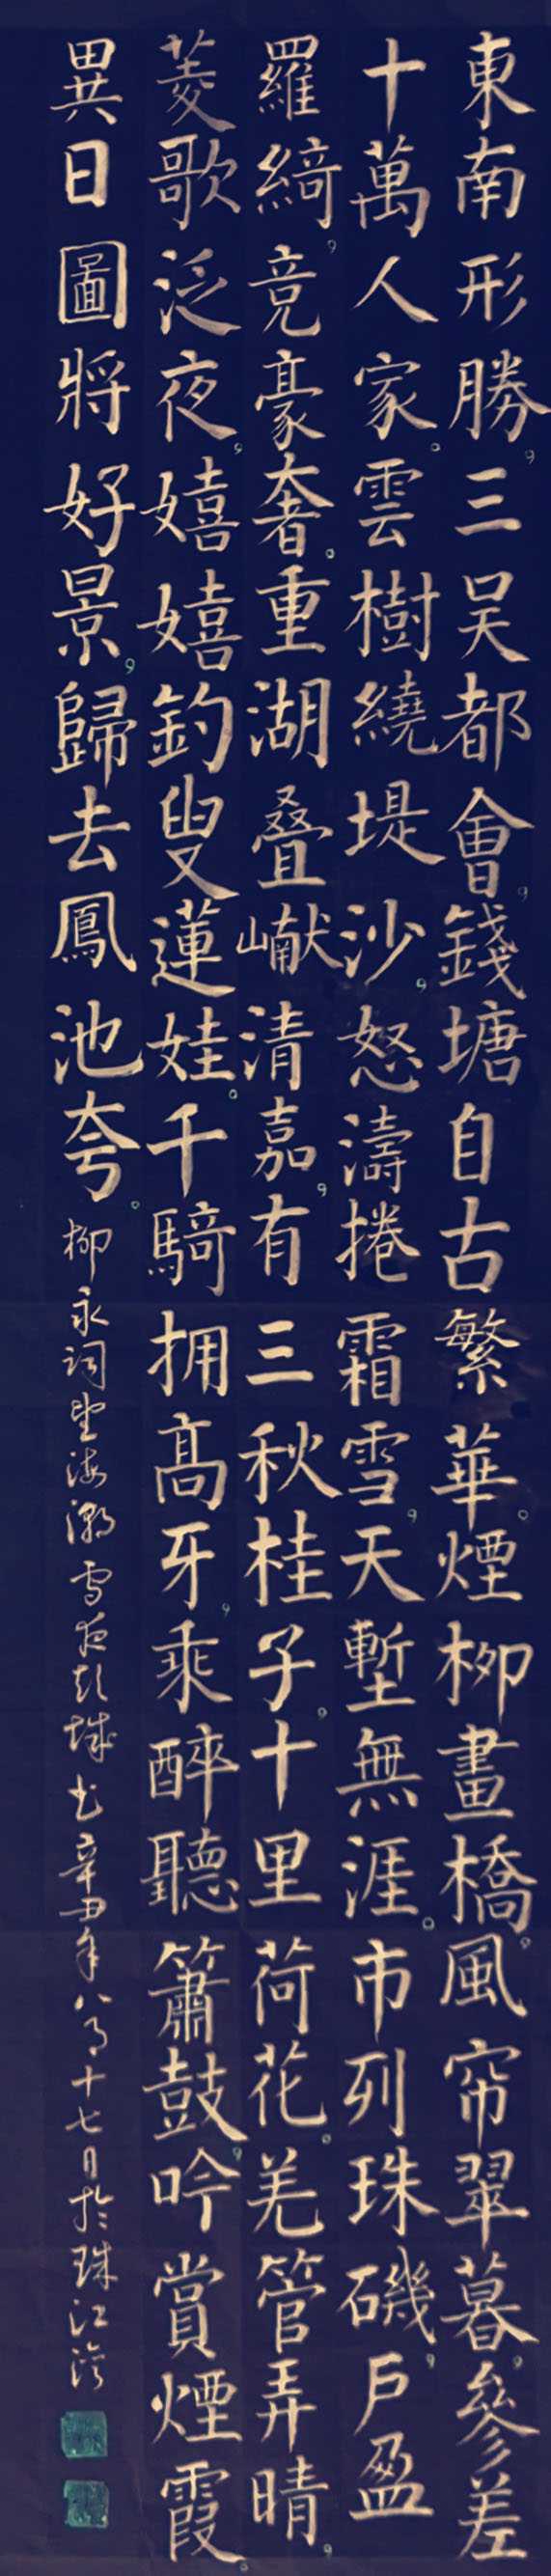 東南形勝，三吴都會，錢塘自古繁華。煙柳畫橋，風帘翠暮，參差
十萬人家。雲樹繞堤沙，怒濤捲霜雪，天塹無涯。市列珠磯，戶盈
羅綺，竞豪奢。重湖叠巘清嘉，有三秋桂子，十里荷花。羌管弄晴，
菱歌泛夜，嬉嬉釣叟蓮娃。千騎拥髙牙，乘醉聽簫鼓，吟賞煙霞。
異日圖將好景，歸去鳳池夸。柳永詞望海潮彭城书辛丑年八月十七日於珠江